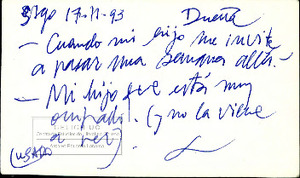 Stgo 17-11-93 Dueña
- Cuando mi hijo me invite
a pasar una semana allá.-
- Mi hijo que está muy
ocupado. (y no la viene
a ver)
(USADO)